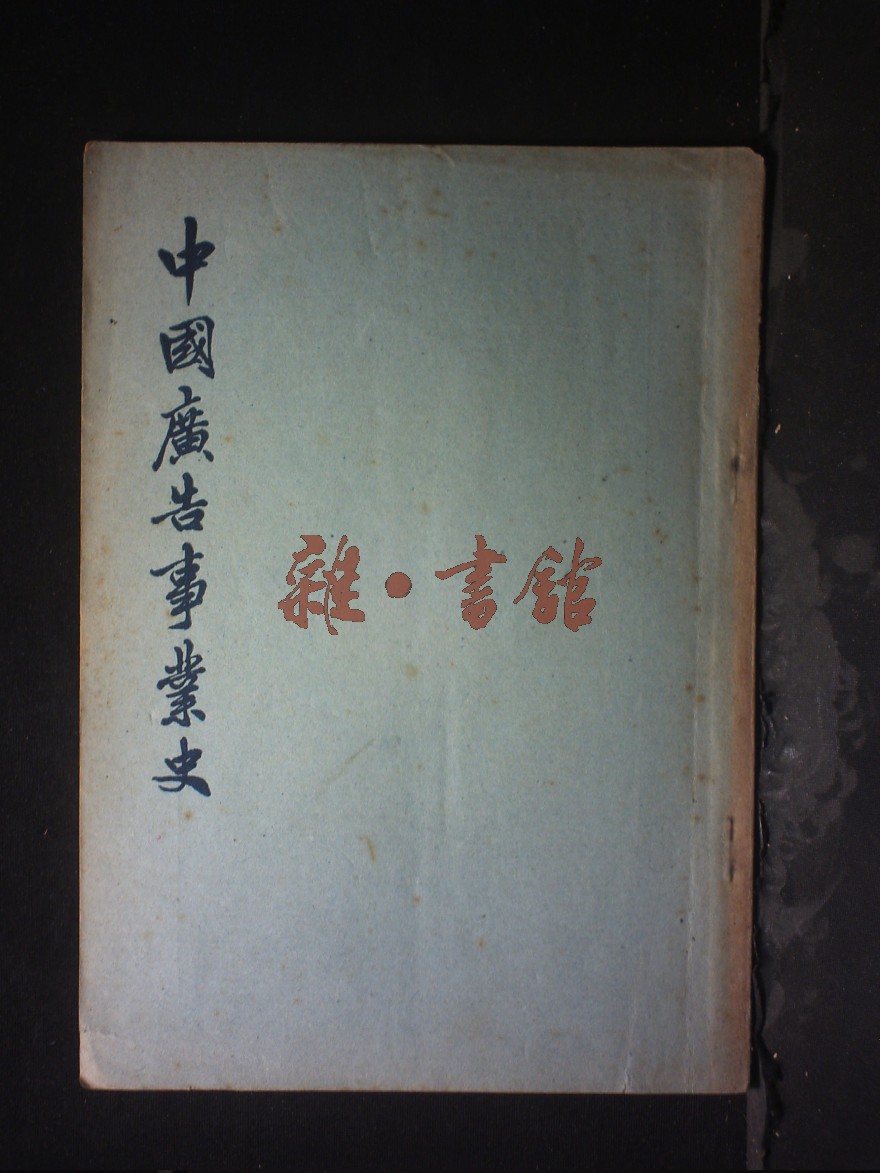 中國廣告事業史
雜·書館